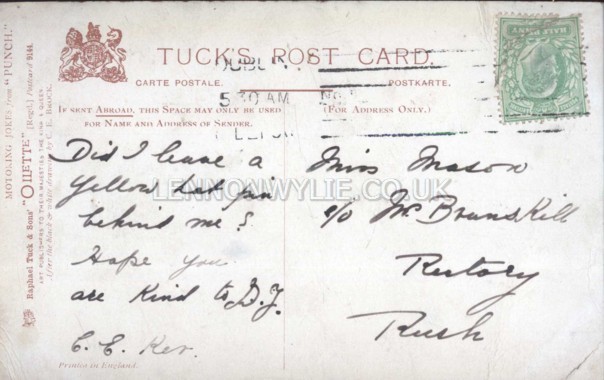 TUCK'S POST CARD.
CARTE POSTALE. POSTKARTE.
IF SENT ABROAD, THIS SPACE MAY ONLY BE USED
FOR NAME AND ADDRESS OF SENDER.
(FOR ADDRESS ONLY.)
5 30 AM
HALF PENNY
MOTORING JOKES from "PUNCH."
Raphael Tuck & Sons' "OILETTE" [Regd.] Postcard 9144.
ART PUBLISHERS TO THEIR MAJESTIES THE KING & QUEEN.
Did I leave a
yellow hat pin
behind me?
Hope you
are kind to D.J.
C. E.
Miss Mason
c/o Mr Brunskill
Rectory
Rush
Printed in England.
LENNONWYLIE.CO.UK